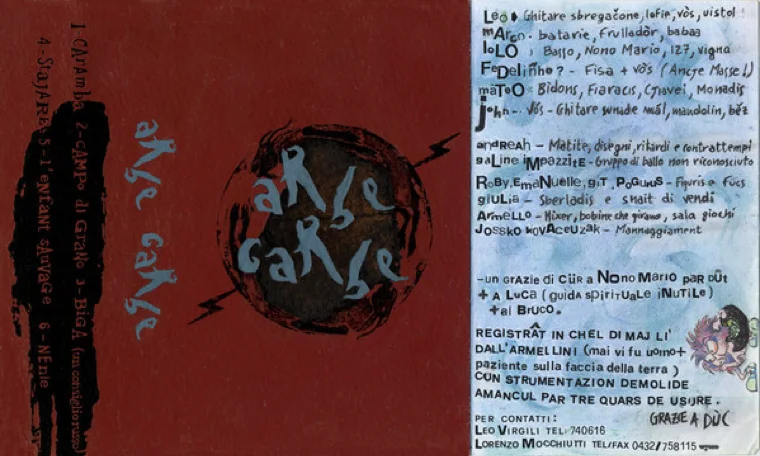 1-CArAmba 2-CAMPO di GrANO 3-BIGA (un consiglio russo)
4-StajARE 5-l'eNfANt SAuvAGe 6-NENie
aRbe gaRbe
aRbe
gaRbe
Leo Ghitare sbregačone, lofie, vòs, uistol
mArco. batarie, frulladôr, babaa
loLO : Basso, Nono Mario, 127, vigna
FeDeliñho? - Fisa + vôs (Ancje Masse!)
maTeO = Bidons, Fiaracis, Cjavei, Monadis
john-. Vôs - Ghitare sunade mâl, mandolin, bêz
andreaH - Matite, disegni, ritardi e contrattempi
saLine iMpazzitE - Gruppo di ballo non riconosciuto
RoBy, EmaNuelle, giT, PoGuruS - Figuris e fûcs
giULiA - Sberladis e snait di vendi
ArmeLLO - Mixer, bobine che girano, sala giochi
JOSSko kovAceUzak - Mannaggiament
-un GrAzie di CÜR A NOno MariO paR DÛt
+ A LuCa (guida spiriTuaLe iNuTiLe)
+al Bruco.
REGISTRÂT IN CHEL DI MAJ LI'
DALL'ARMELLINI (mai vi fu uomo+
paziente sulla faccia della terra)
CUN STRUMENTAZION DEMOLIDE
AMANCUL PAR TRE QUARS DE USÙRE.
GRAZIE A DÛC
PER CONTATTI:
LEO VIRGILI TEL: 740616
LORENZO MOCCHIUTTI TEL/FAX 0432/758115